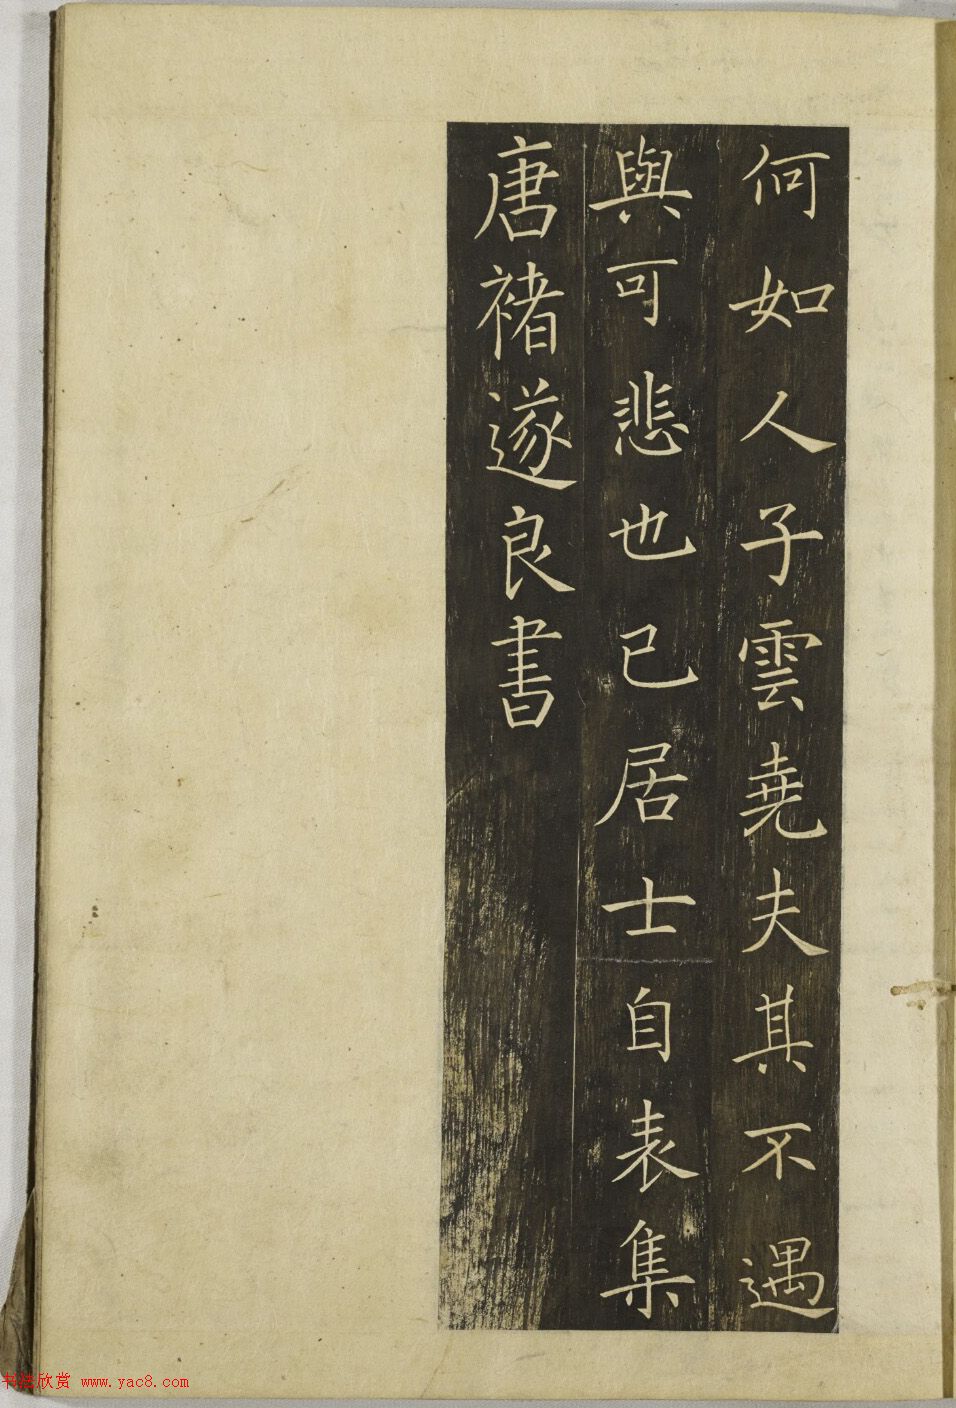 何如人子雲堯夫其不遇
與可悲也已居士自表集
唐褚遂良書
书法欣赏 www.yac8.com